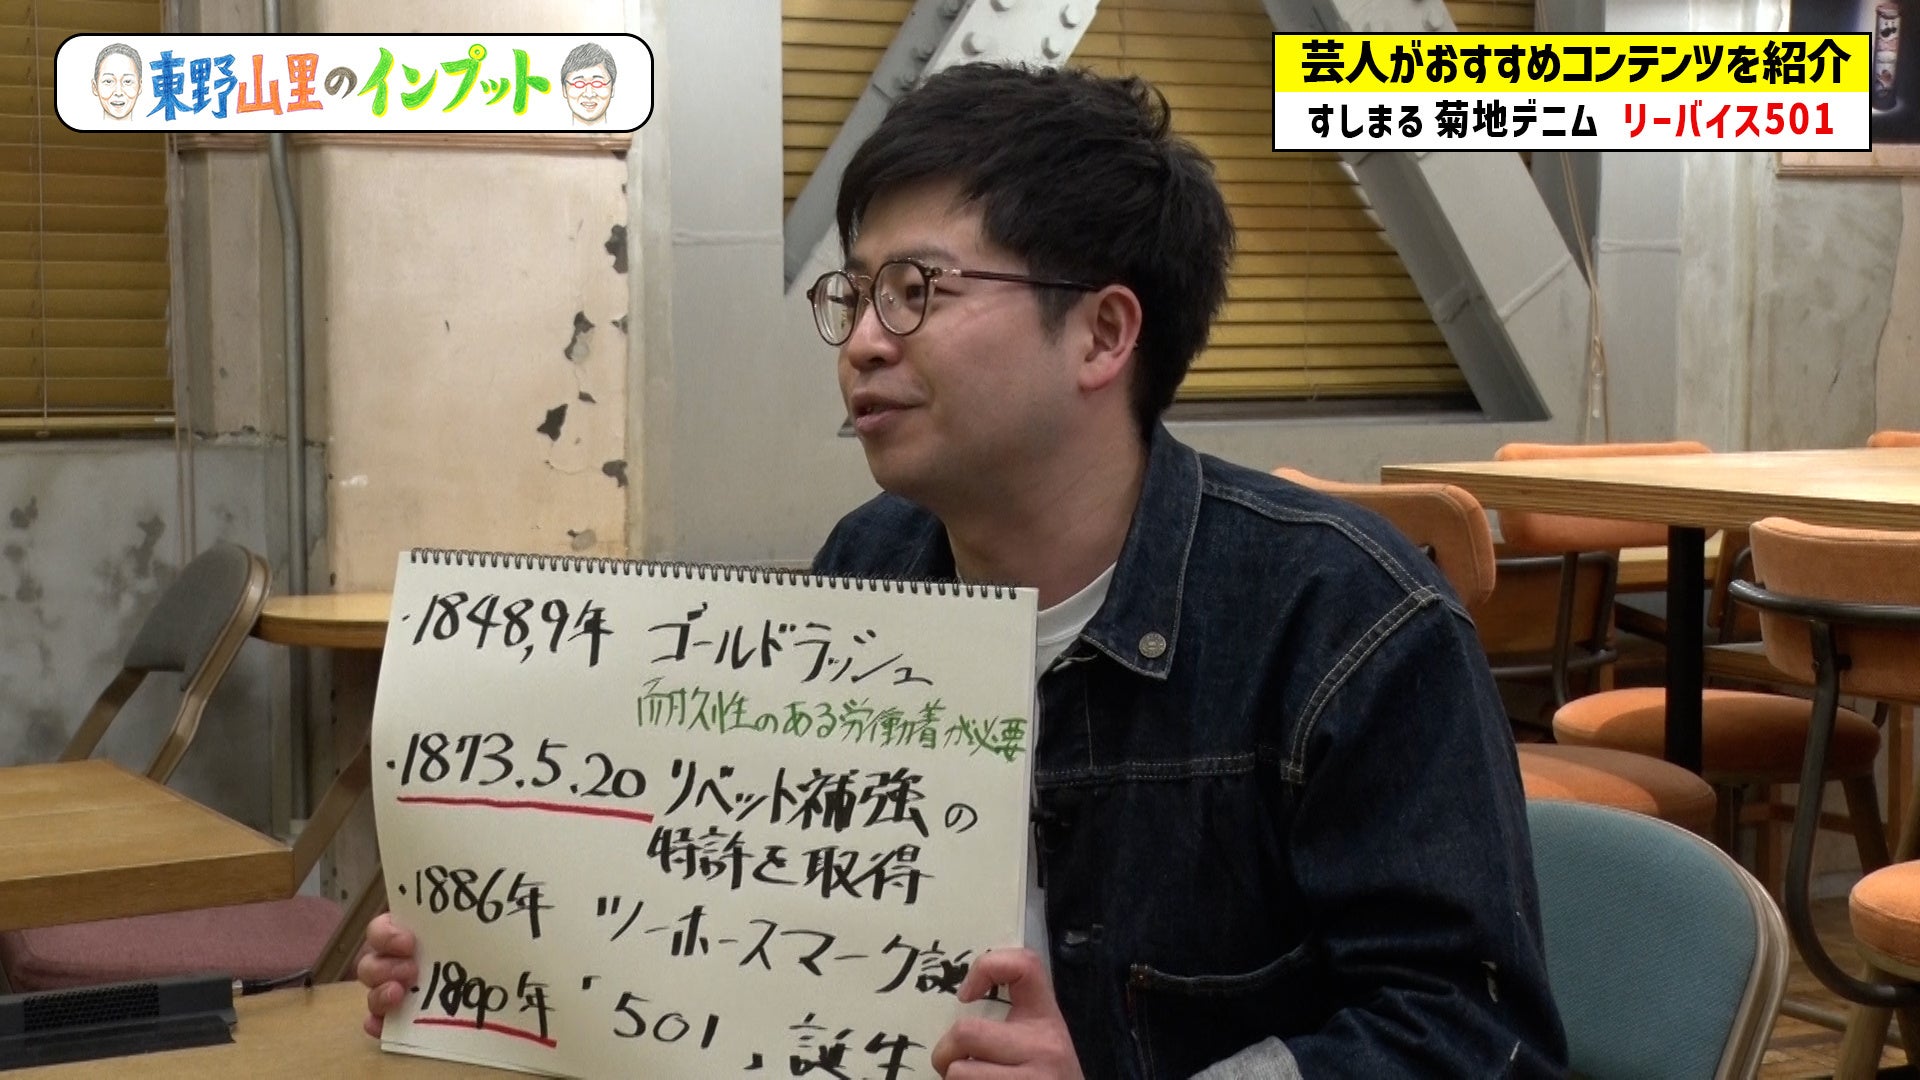 東野山里のインプット
芸人がおすすめコンテンツを紹介
すしまる 菊地デニム リーバイス501
・1848,9年 ゴールドラッシュ
耐久性のある労働着が必要
・1873.5.20 リベット補強の
特許を取得
・1886年 ツーホースマーク誕生
・1890年 「501」誕生